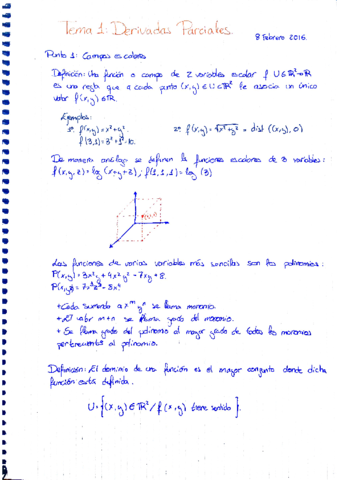 Tema 1: Derivadas Parciales.
8 Febrero 2016.
Punto 1: Campos escalares
Definición: Una función o campo de 2 variables escalar f U⊆ℝ²→ℝ
es una regla que a cada punto (x,y)∈U⊆ℝ² le asocia un único
valor f(x,y)∈ℝ.
Ejemplos:
1º f(x,y)=x²+y². 2º f(x,y)=√x²+y² = dist ((x,y),0)
f(3,1)=3²+1²=10.
De manera análoga se definen la funciones escalares de 3 variables:
f(x,y,z)=log(x+y+z); f(1,1,1)=log(3)
Las funciones de varias variables más sencillas son los polinomios:
P(x,y)=3x²+4x²y²-7xy+8.
+Cada sumando a x^m y^n se llama monomio.
+El valor m+n se llama grado del monomio.
+Se llama grado del polinomio al mayor grado de todos los monomios
pertenecientes al polinomio.
Definición: El dominio de una función es el mayor conjunto donde dicha
función está definida.
U={(x,y)∈ℝ²/f(x,y) tiene sentido}.